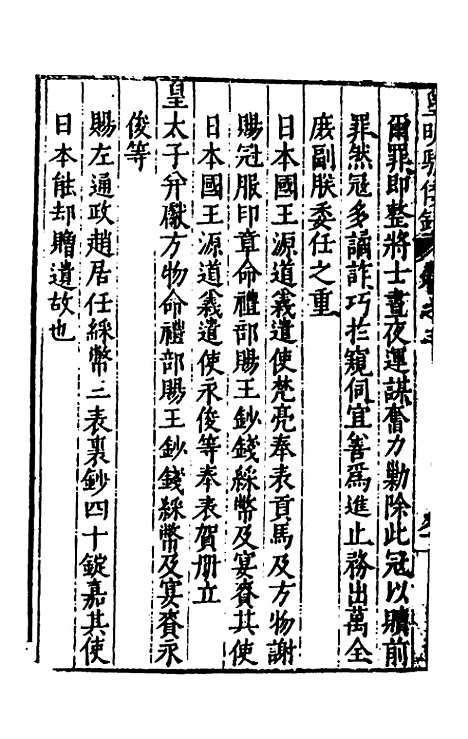 皇明馭倭錄 卷之三
爾罪即整將士晝夜運謀奮力勦除此冦以贖前
罪然冦多譎詐巧於窺伺宜善爲進止務出萬全
庻副朕委任之重
日本國王源道義遣使梵亮奉表貢馬及方物謝
賜冠服印章命禮部賜王鈔錢綵幣及宴賚其使
日本國王源道義遣使永俊等奉表賀册立
皇太子并獻方物命禮部賜王鈔錢綵幣及宴賚永
俊等
賜左通政趙居任綵幣三表裏鈔四十錠嘉其使
日本能却贈遺故也